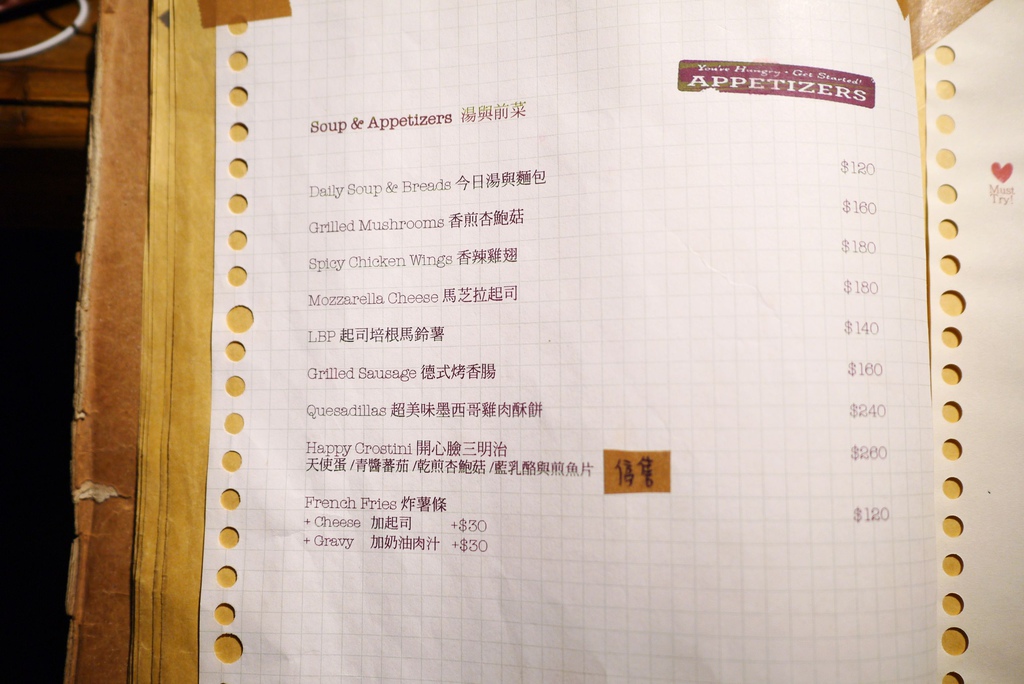 You're Hungry · Get Started!
APPETIZERS
Soup & Appetizers 湯與前菜
Daily Soup & Breads 今日湯與麵包 $120
Grilled Mushrooms 香煎杏鮑菇 $160
Spicy Chicken Wings 香辣雞翅 $180
Mozzarella Cheese 馬芝拉起司 $180
LBP 起司培根馬鈴薯 $140
Grilled Sausage 德式烤香腸 $160
Quesadillas 超美味墨西哥雞肉酥餅 $240
Happy Crostini 開心臉三明治 $260
天使蛋/青醬蕃茄/乾煎杏鮑菇/藍乳酪與煎魚片 停售
French Fries 炸薯條 $120
+ Cheese 加起司 +$30
+ Gravy 加奶油肉汁 +$30
Must
Try!